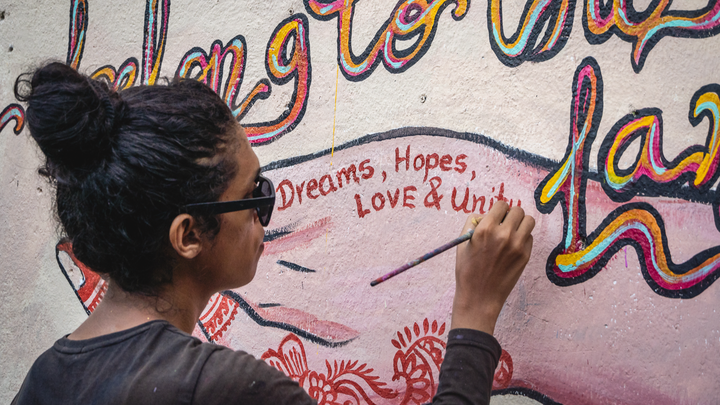 belong to
Dreams, Hopes,
LOVE & Unity